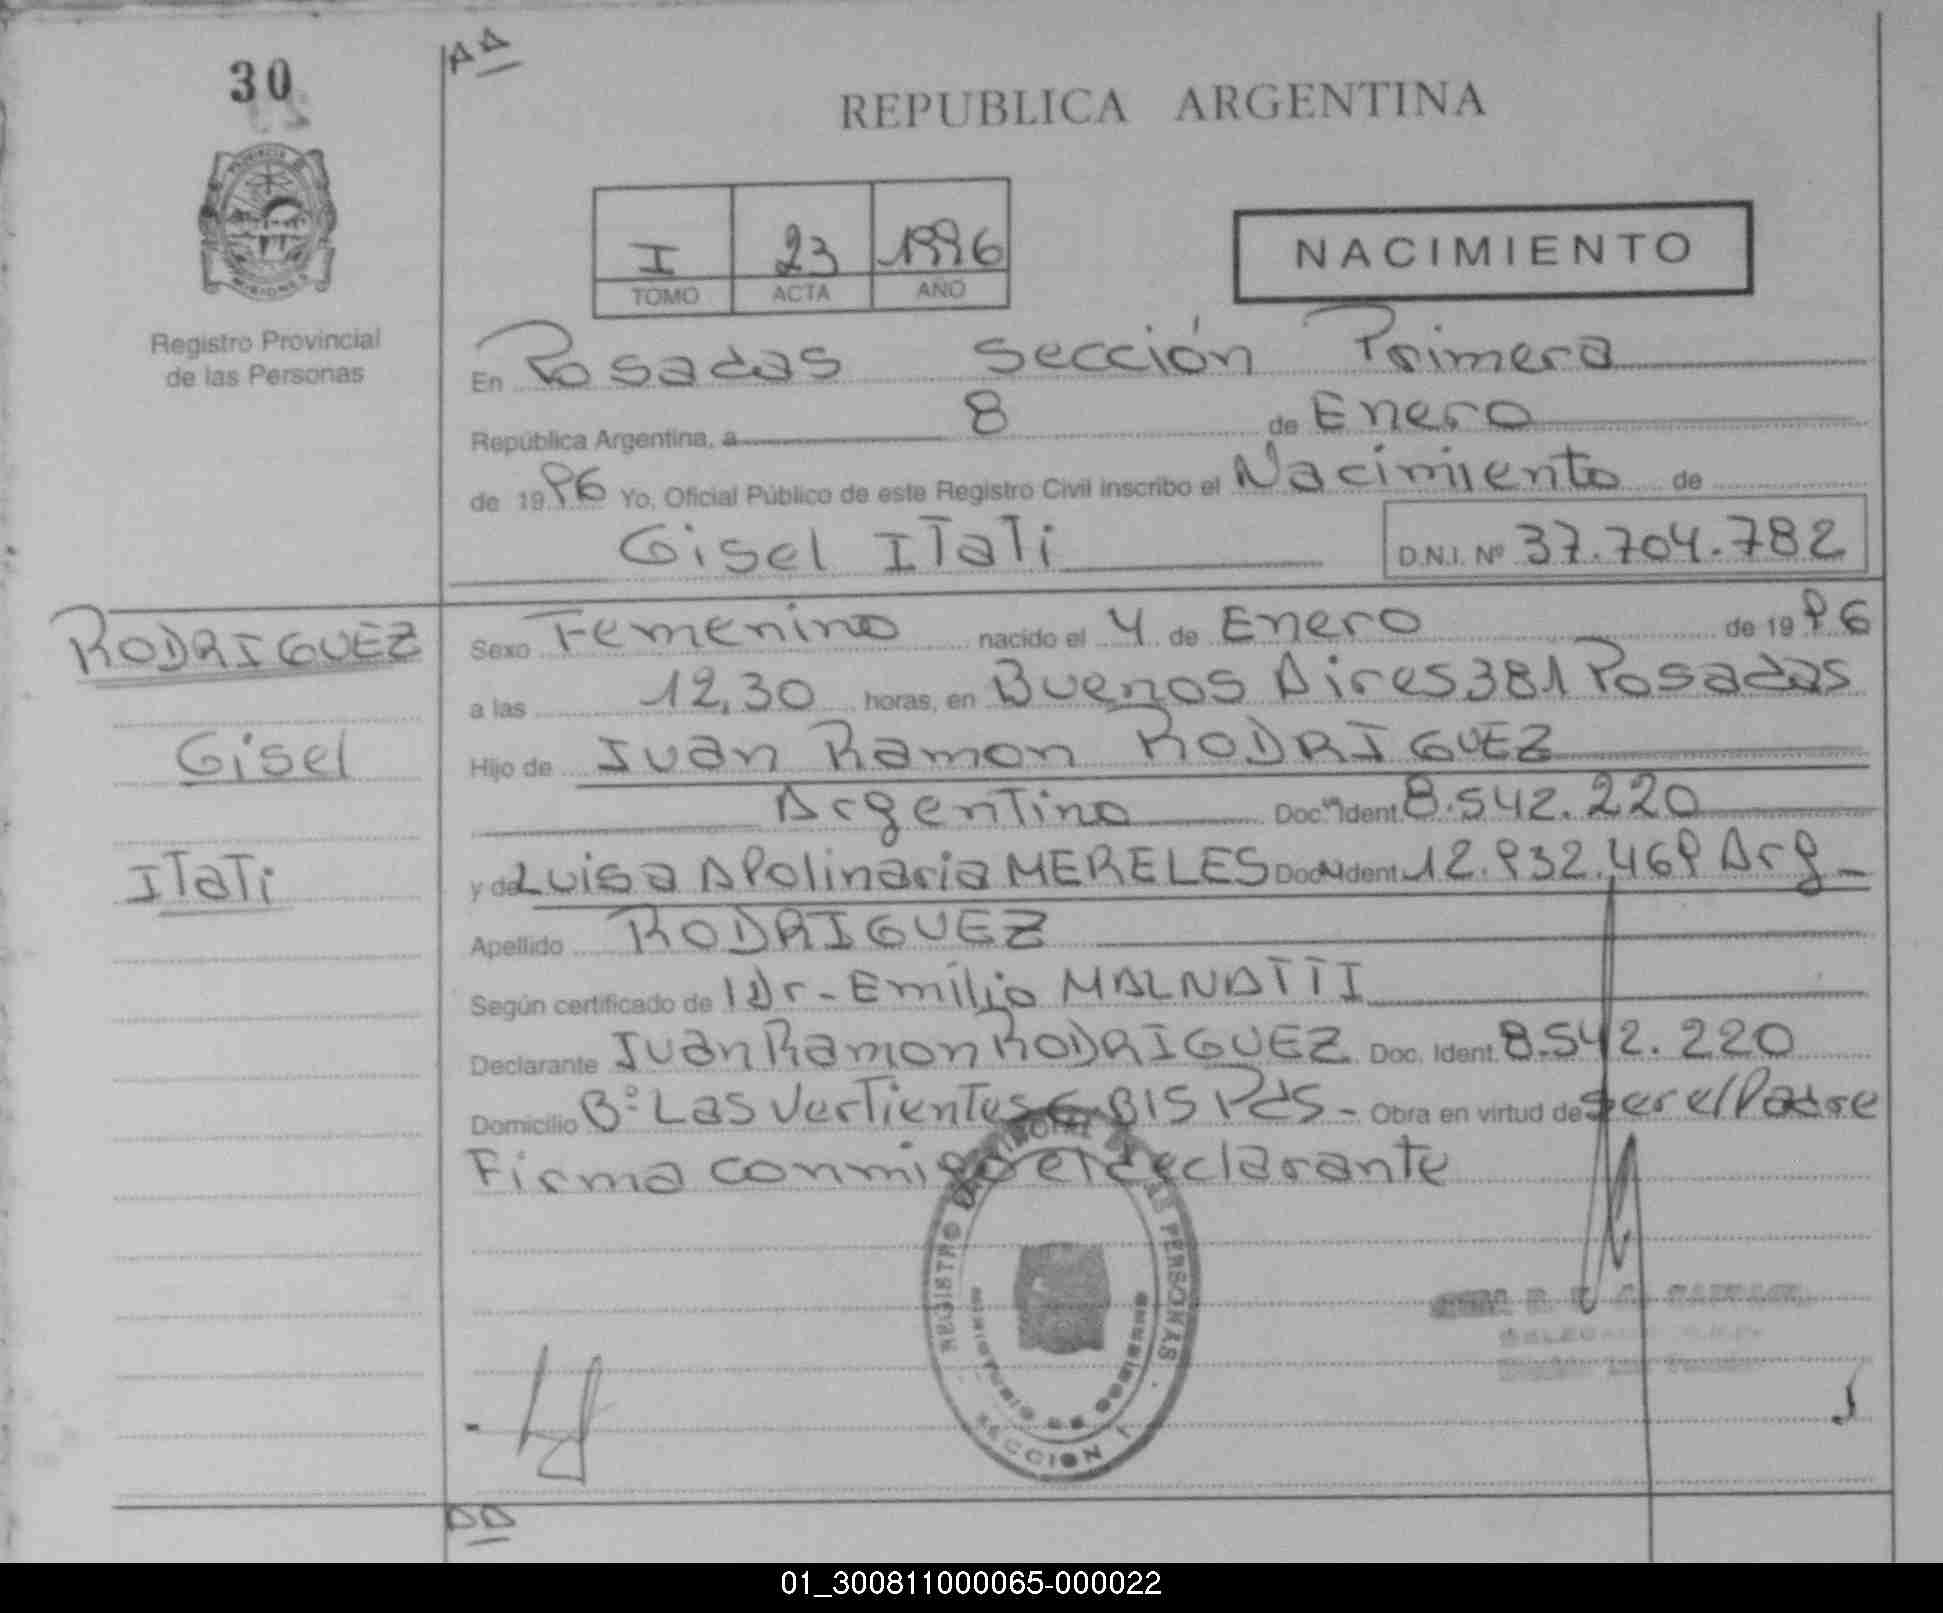 30
AA
REPUBLICA ARGENTINA
I 23 1996
TOMO ACTA AÑO
NACIMIENTO
PROVINCIA DE
MISIONES
Registro Provincial
de las Personas
En Posadas Sección Primera
República Argentina, a 8 de Enero
de 1996 Yo, Oficial Público de este Registro Civil inscribo el Nacimiento de
Gisel ITaTi D.N.I. Nº 37.704.782
RODRIGUEZ
Gisel
ITaTi
Sexo Femenino nacido el 4 de Enero de 1996
a las 12,30 horas, en Buenos Aires 381 Posadas
Hijo de Juan Ramon RODRIGUEZ
Argentino Doc. Ident. 8.542.220
y de Luisa APolinaria MERELES Doc. Ident. 12.932.469 Arg_
Apellido RODRIGUEZ
Según certificado de Dr - Emilio MALNATTI
Declarante Juan Ramon RODRIGUEZ Doc. Ident. 8.542.220
Domicilio Bº Las VerTientes C. BIS Pds - Obra en virtud de ser el Padre
Firma conmigo el declarante
REGISTRO PROVINCIAL DE LAS PERSONAS
SECCION 1
AA
01_300811000065-000022